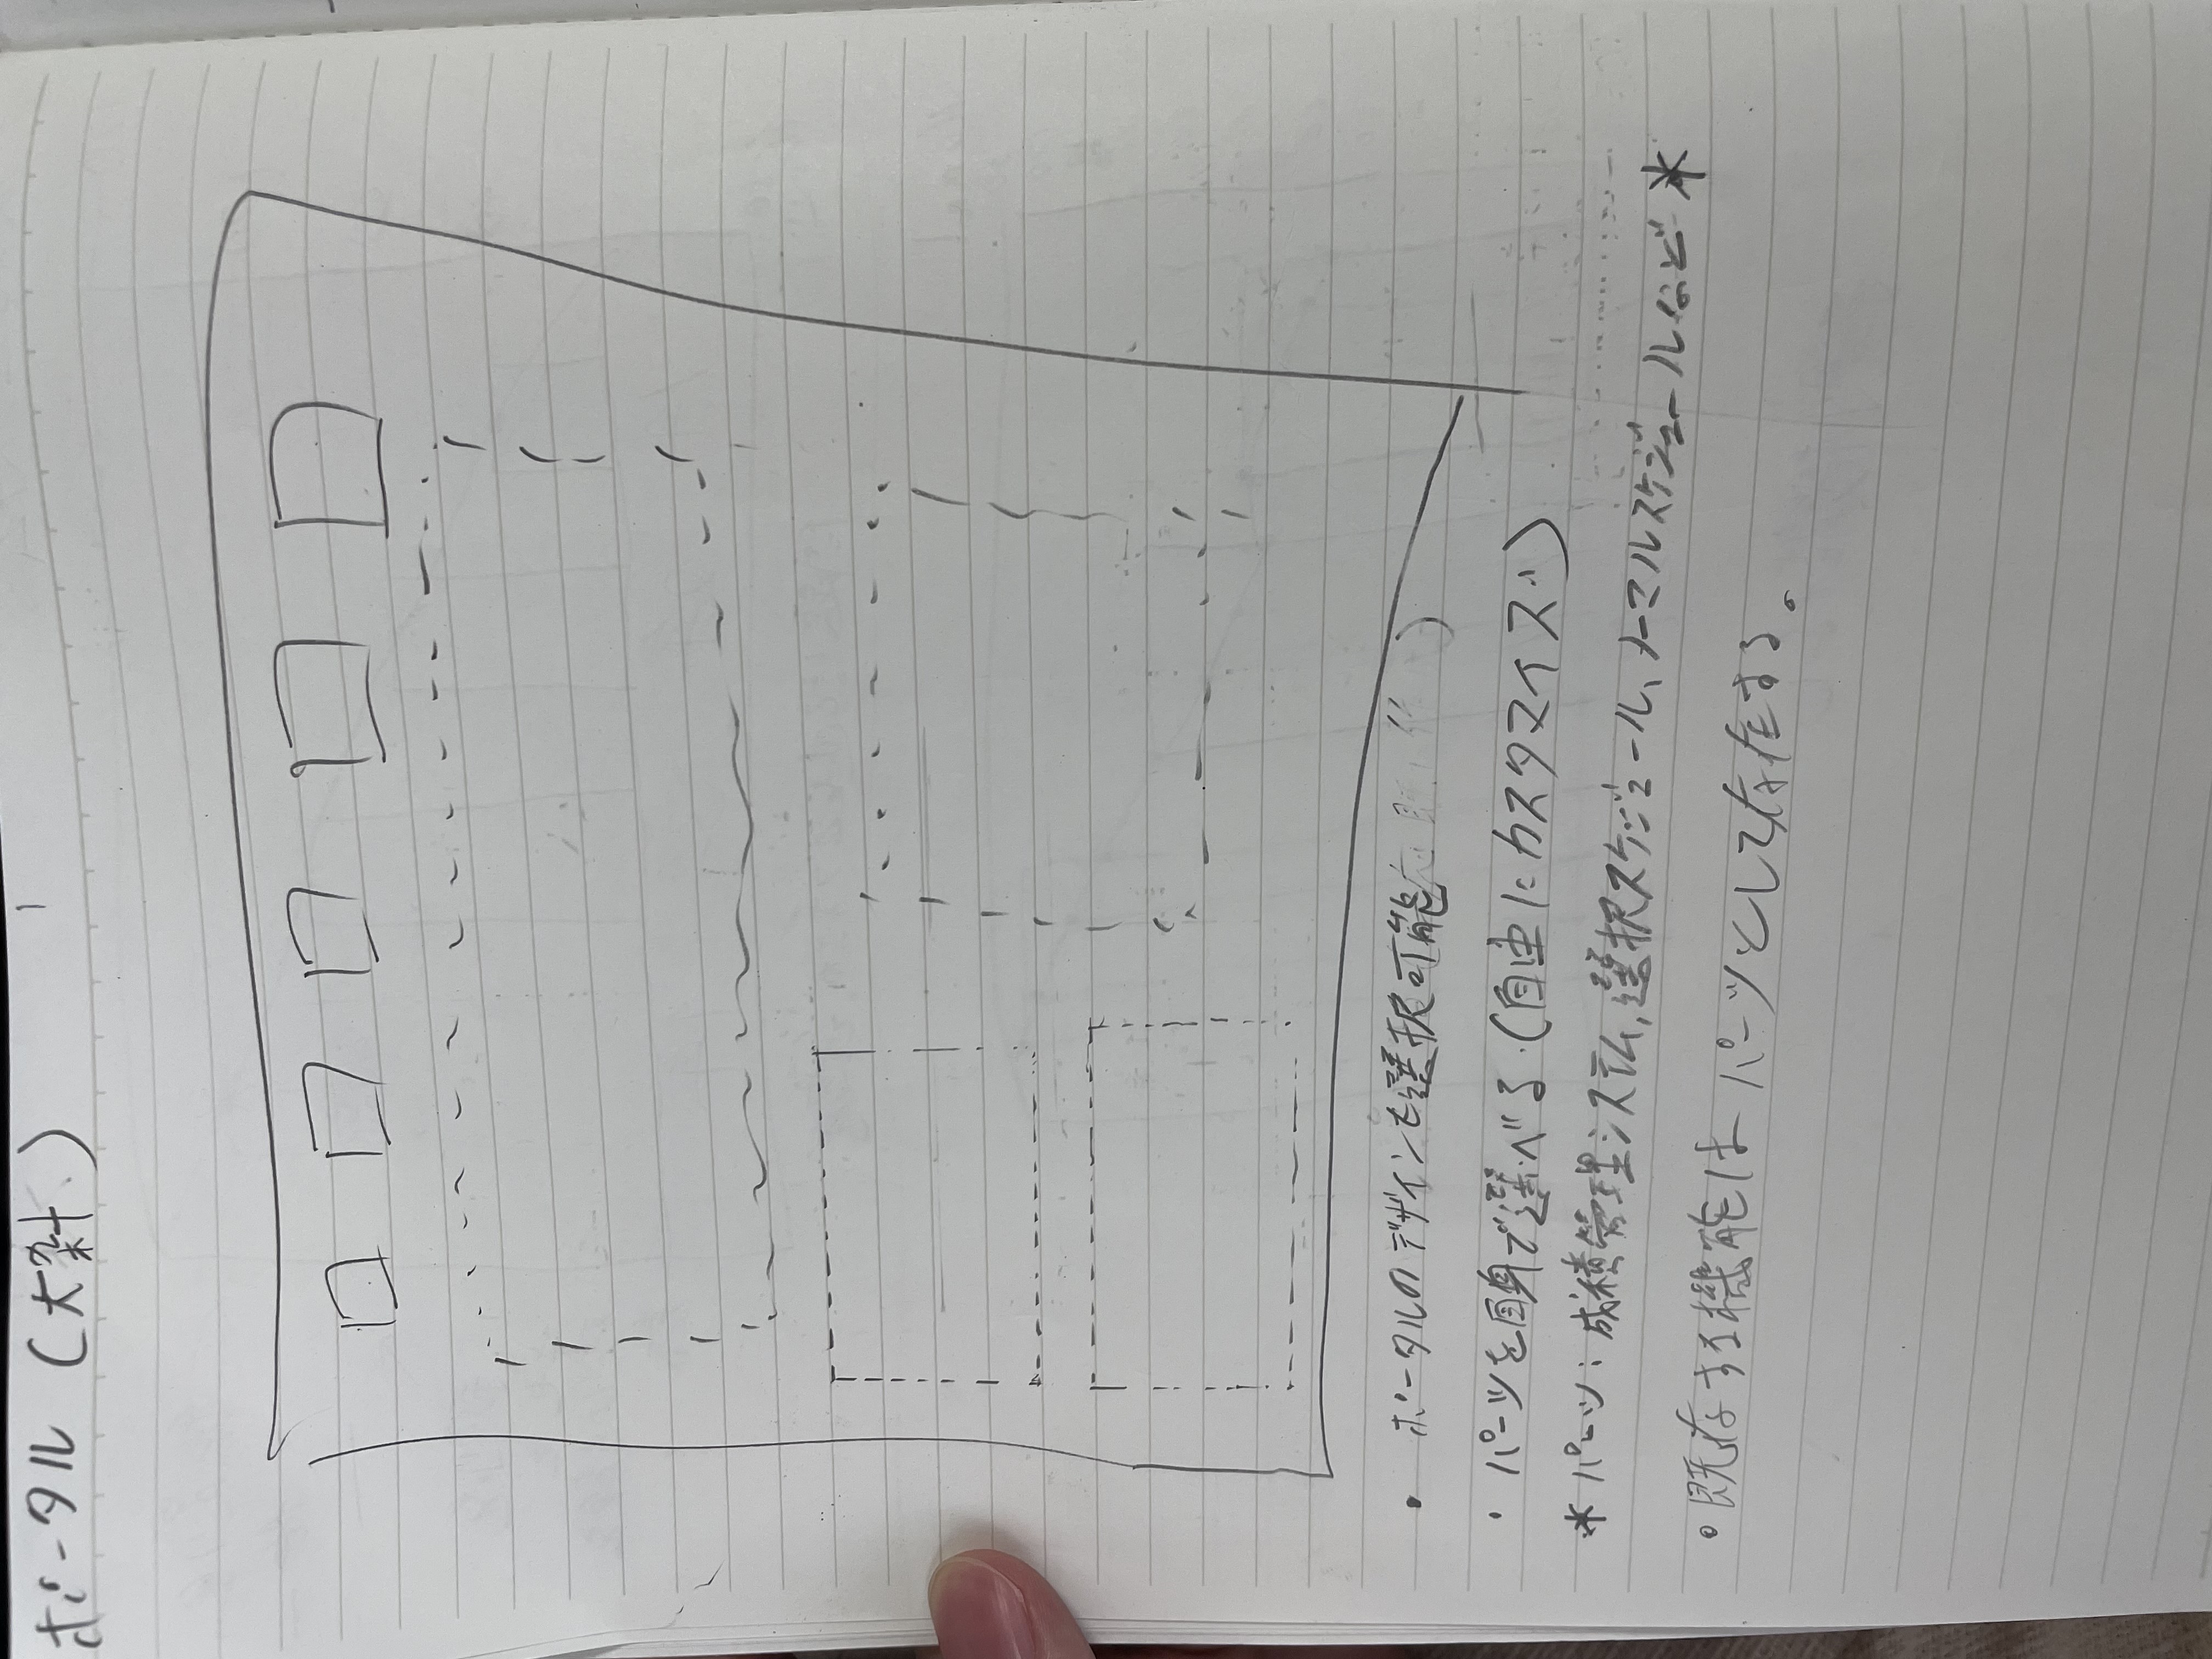 ポータル (大雑)
・ポータルのデザインも選択可能
・パーツを自身で選べる (自由にカスタマイズ)
* パーツ: 成積管理システム, 選択スケジュール、ノーマルスケジュールなど *
・既存する機能は パーツとして存在する。